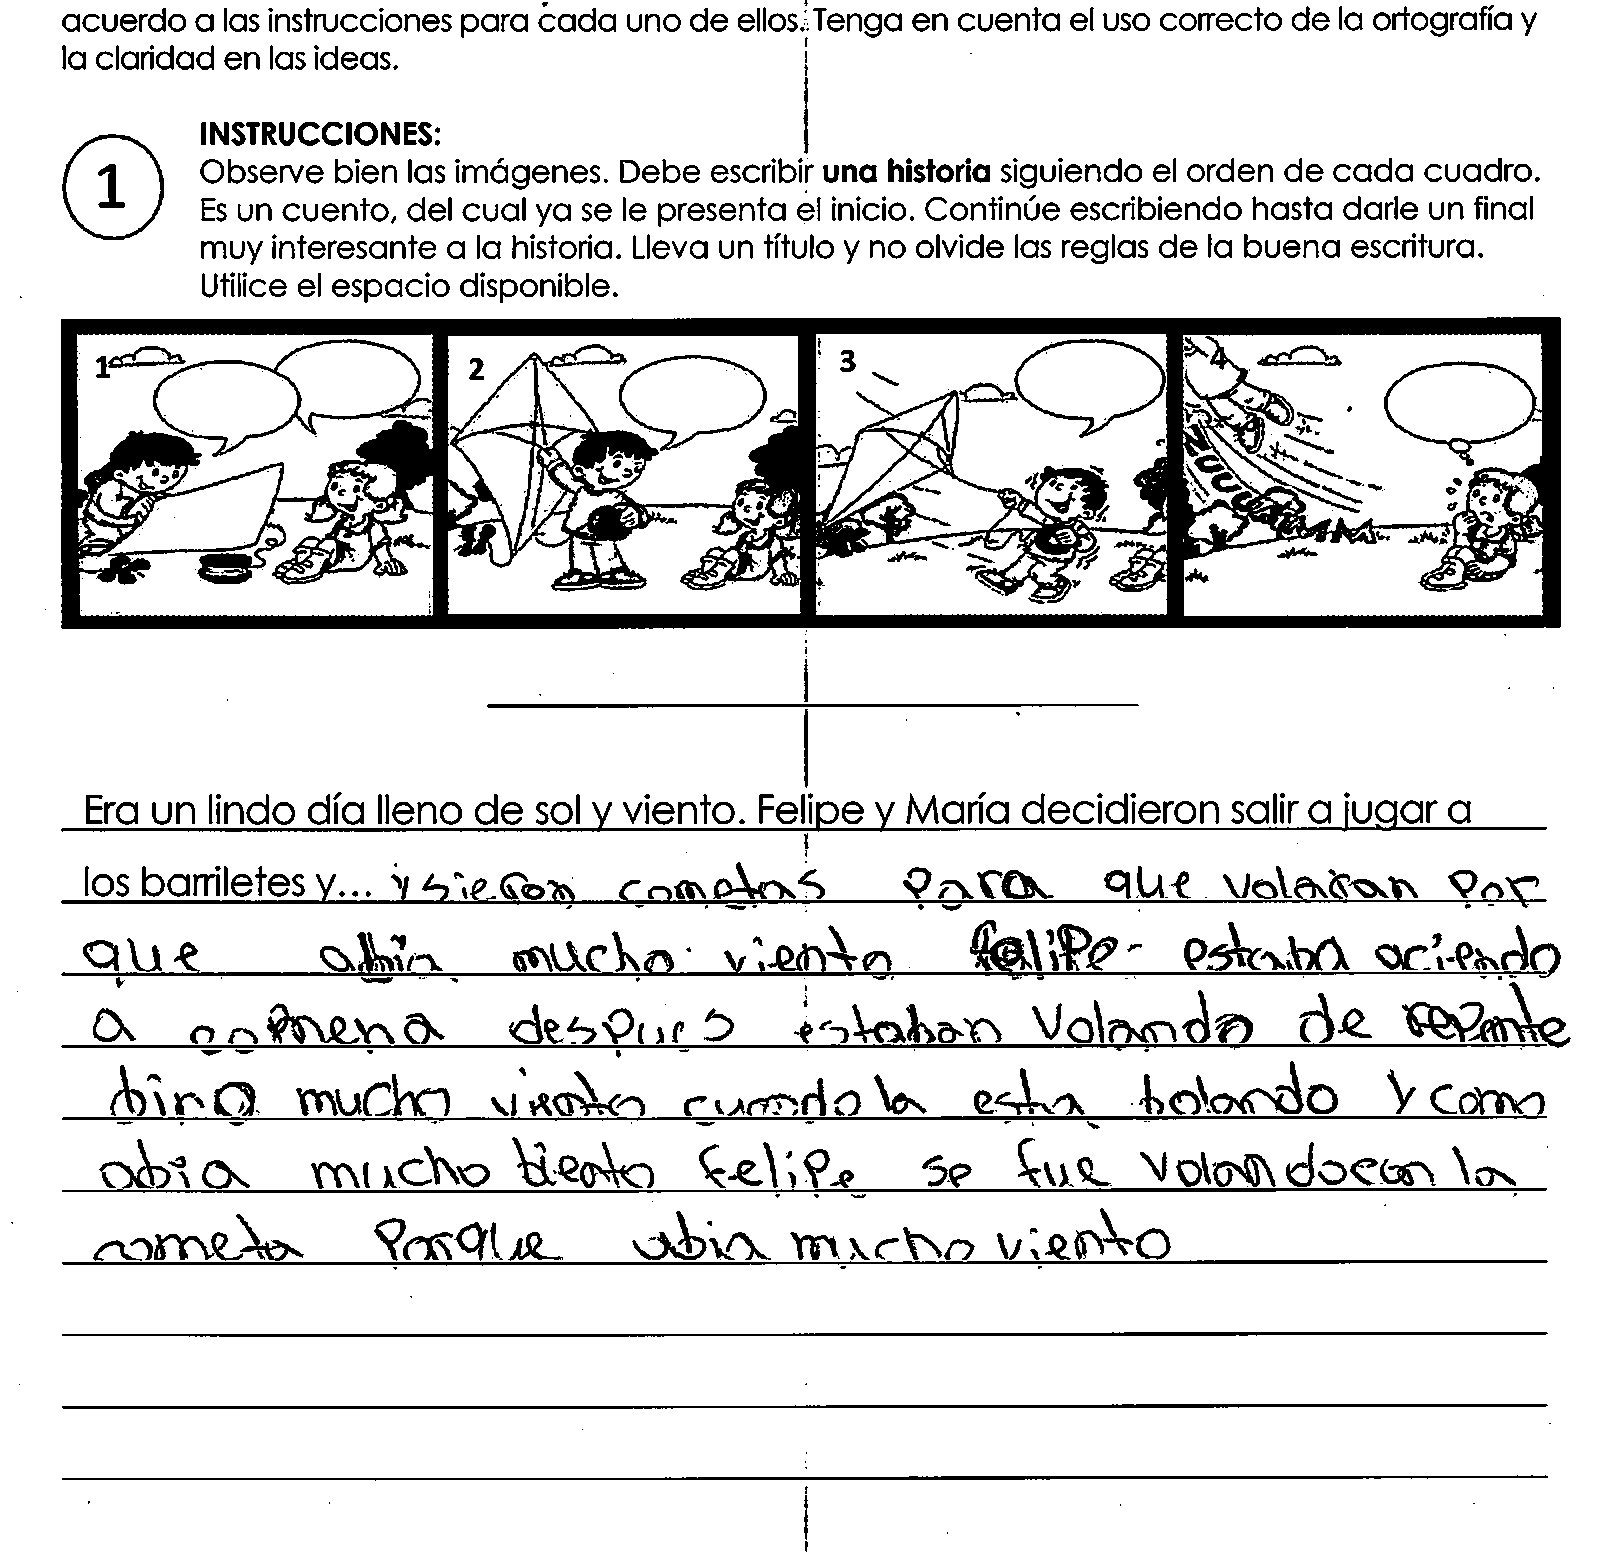 acuerdo a las instrucciones para cada uno de ellos. Tenga en cuenta el uso correcto de la ortografía y
la claridad en las ideas.
1
INSTRUCCIONES:
Observe bien las imágenes. Debe escribir una historia siguiendo el orden de cada cuadro.
Es un cuento, del cual ya se le presenta el inicio. Continúe escribiendo hasta darle un final
muy interesante a la historia. Lleva un título y no olvide las reglas de la buena escritura.
Utilice el espacio disponible.
1 2 3 4
ZUUUU
Era un lindo día lleno de sol y viento. Felipe y María decidieron salir a jugar a
los barriletes y... y sieron cometas para que volaran por
que abia mucho viento felipe estaba aciendo
a despues estaban volando de repente
bino mucho viento cuando la esta bolando y como
abia mucho biento felipe se fue volando con la
cometa porque abia mucho viento